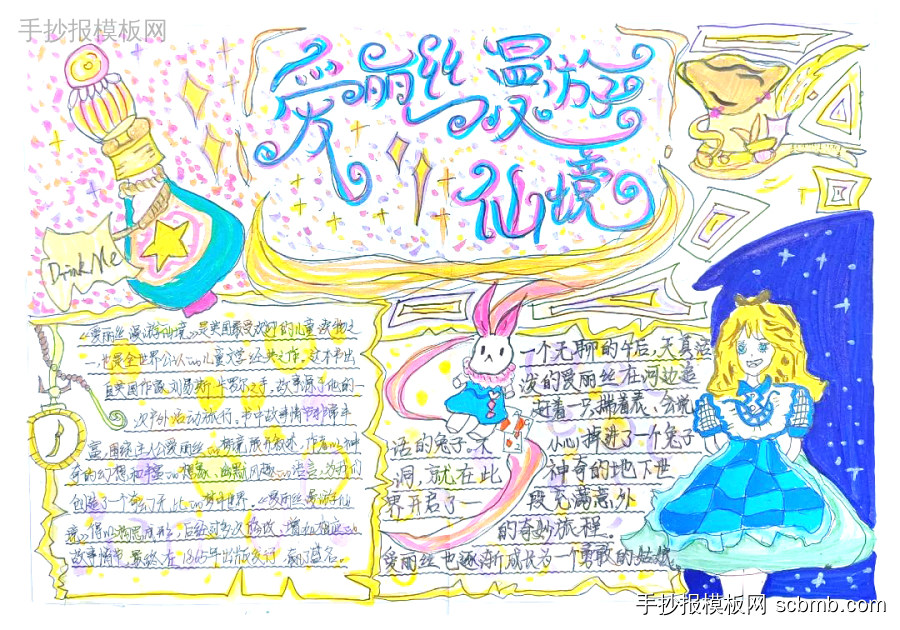 手抄报模板网
爱丽丝漫游仙境
Drink Me
《爱丽丝漫游仙境》是英国最受欢迎的儿童读物之
一,也是全世界公认的儿童文学经典之作。这本书出
自英国作家刘易斯·卡罗尔之手,故事源于他的一
次户外活动旅行。书中故事情节非常丰
富,围绕主人公爱丽丝的梦境展开叙述,作者以神
奇的幻想和丰富的想象、幽默风趣的语言,为我们
创造了一个的梦中世界。《爱丽丝漫游仙
境》得以构思成形,后经过多次修改、增加相应的
故事情节,最终在1865年出版发行
一个无聊的午后,天真活
泼的爱丽丝在河边追
赶着一只揣着表、会说
话的兔子。不小心掉进了一个兔子
洞,就在此神奇的地下世
界开启了一段充满意外
的奇妙旅程。
爱丽丝也逐渐成长为一个勇敢的姑娘。
手抄报模板网 scbmb.com